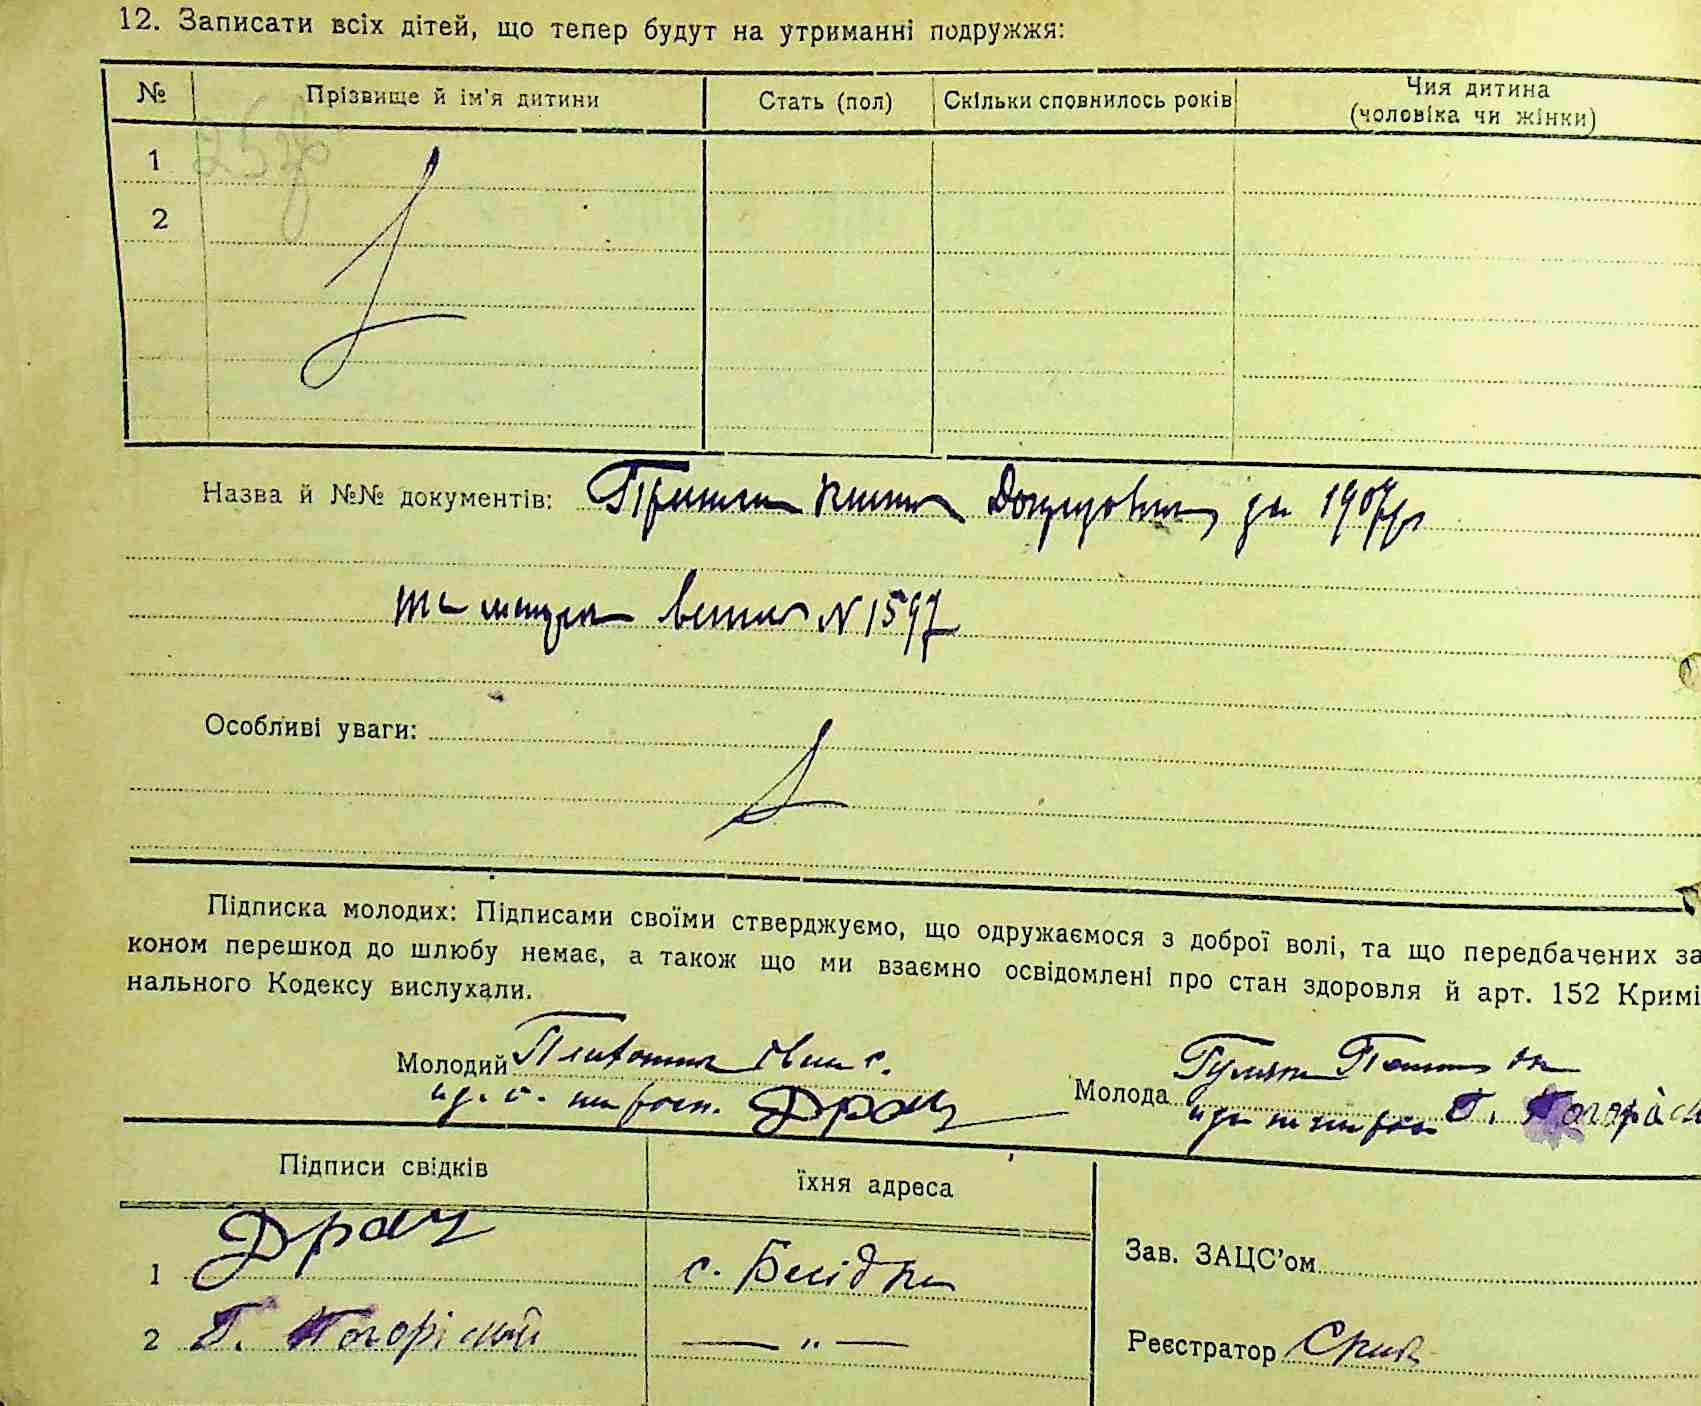 12. Записати всіх дітей, що тепер будут на утриманні подружжя:
№ Прізвище й ім'я дитини Стать (пол) Скільки сповнилось років Чия дитина (чоловіка чи жінки)
1
2
Назва й №№ документів: 1907р
та метра N 1597
Особливі уваги:
Підписка молодих: Підписами своїми стверджуємо, що одружаємося з доброї волі, та що передбачених за
коном перешкод до шлюбу немає, а також що ми взаємно освідомлені про стан здоровля й арт. 152 Кримі
нального Кодексу вислухали.
Молодий Іван С. Молода
Драч Г. Погоріс
Підписи свідків їхня адреса
1 Драч с. Бесідка
Зав. ЗАЦС'ом
2 Г. Погоріський — „ —
Реєстратор